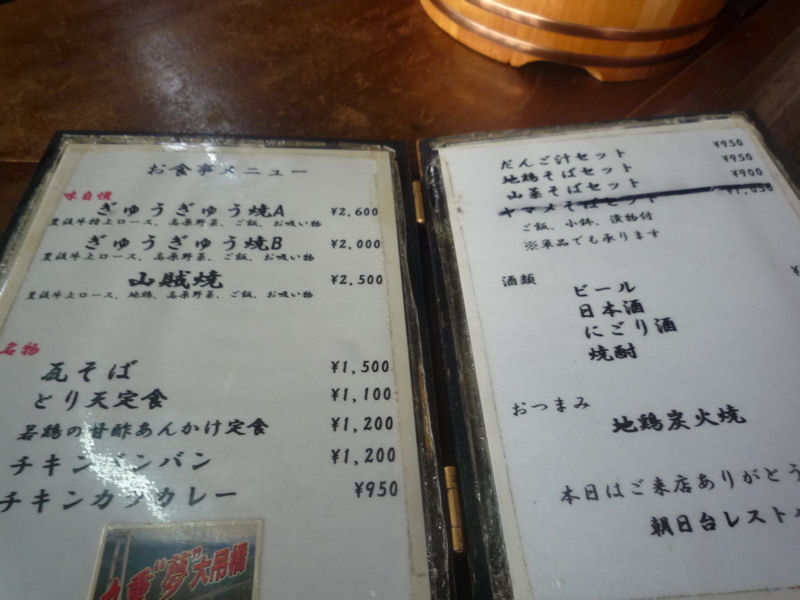 お食事メニュー
味自慢
ぎゅうぎゅう焼A ¥2,600
豊後牛特上ロース、高原野菜、ご飯、お吸い物
ぎゅうぎゅう焼B ¥2,000
豊後牛上ロース、高原野菜、ご飯、お吸い物
山賊焼 ¥2,500
豊後牛上ロース、地鶏、高原野菜、ご飯、お吸い物
名物
瓦そば ¥1,500
とり天定食 ¥1,100
若鶏の甘酢あんかけ定食 ¥1,200
チキンバンバン ¥1,200
チキンカツカレー ¥950
九重"夢"大吊橋
だんご汁セット ¥950
地鶏そばセット ¥950
山菜そばセット ¥900
ヤマメそばセット ¥1,050
ご飯、小鉢、漬物付
※単品でも承ります
酒類
ビール
日本酒
にごり酒
焼酎
おつまみ
地鶏炭火焼
本日はご来店ありがとう
朝日台レスト